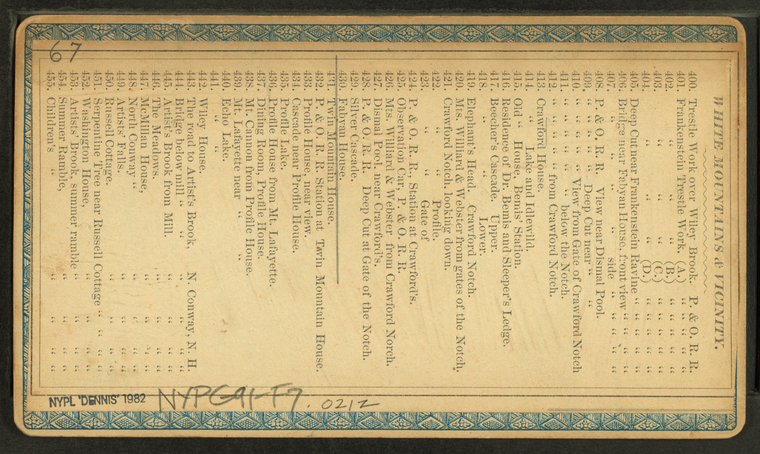 WHITE MOUNTAINS & VICINITY.
400. Trestle Work over Wiley Brook. P. & O. R. R.
401. Frankenstein Trestle Work. (A.) " " " "
402. " " " (B.) " " " "
403. " " " (C.) " " " "
404. " " " (D.) " " " "
405. Deep Cut near Frankenstein Ravine " " " "
406. Bridge near Fabyan House, front view " " " "
407. " " " " side " " " " "
408. P. & O. R. R. View near Dismal Pool.
409. " " " " Deep Cut near " "
410. " " " " View from Gate of Crawford Notch
411. " " " " " below the Notch.
412. " " " " " from Crawford Notch.
413. Crawford House.
414. " " Lake and Idlewild.
415. Old " House, Bemis' Station.
416. Residence of Dr. Bemis and Sleeper's Lodge.
417. Beecher's Cascade. Upper.
418. " " Lower.
419. Elephant's Head, Crawford Notch.
420. Mts. Williard & Webster from gates of the Notch.
421. Crawford Notch, looking down.
422. " " Profile.
423. " " Gate of
424. P. & O. R. R., Station at Crawford's.
425. Observation Car, P. & O. R. R.
426. Mts. Williard & Webster from Crawford Notch.
427. Dismal Pool, near Crawford's.
428. P. & O. R. R. Deep Cut at Gate of the Notch.
429. Silver Cascade.
430. Fabyan House.
431. Twin Mountain House.
432. P. & O. R. R. Station at Twin Mountain House.
433. Profile House, near view.
434. Cascade near Profile House.
435. Profile Lake.
436. Profile House from Mt. Lafayette.
437. Dining Room, Profile House.
438. Mt. Cannon from Profile House.
439. Mt. Lafayette near " "
440. Echo Lake.
441. " "
442. Wiley House.
443. The road to Artist's Brook. N. Conway, N. H.
444. Bridge below mill " " " " "
445. Artist's Brook from Mill. " " "
446. " Meadows. " " "
447. McMillan House, " " "
448. North Conway " " " "
449. Artists' Falls. " " "
450. Russell Cottage. " " "
451. Serpentine Tree near Russell Cottage " " "
452. Washington House. " " "
453. Artists' Brook, summer ramble " " "
454. Summer Ramble, " " "
455. Children's " " " "
67
NYPL 'DENNIS' 1982
NYPG91-F7. 0212